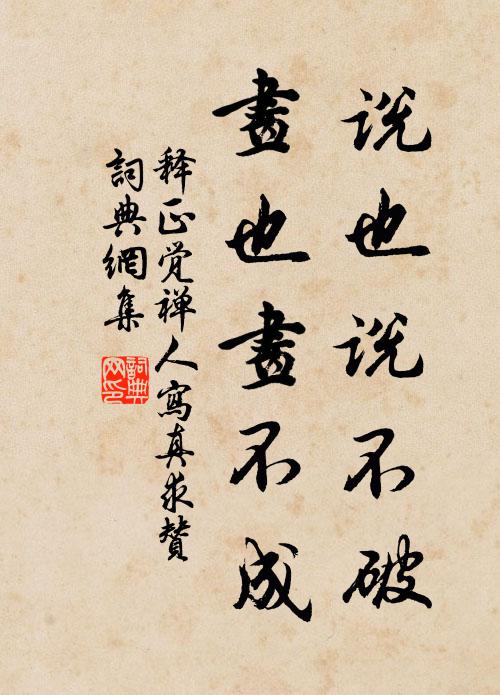 说也说不破
畫也畫不成
释正觉禅人寫真求赞
詞典網集
詞典网印